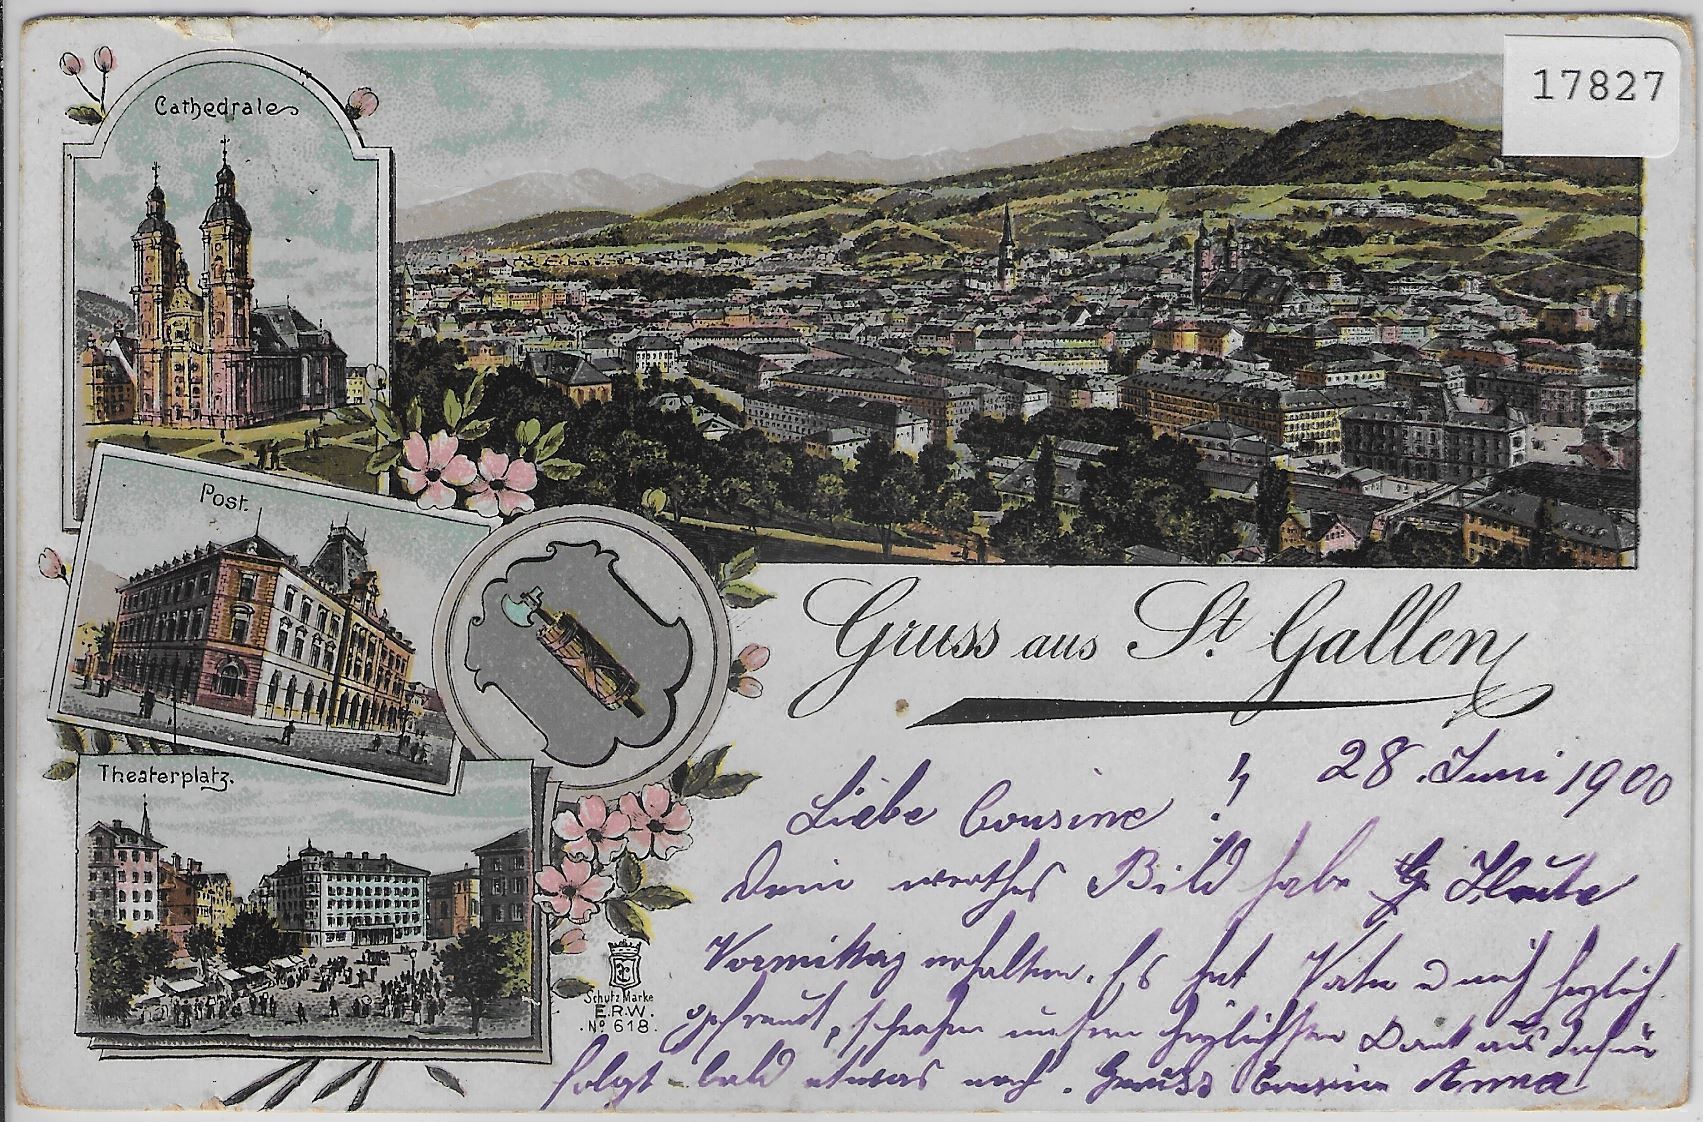 17827
Cathedrale
Post.
Theaterplatz.
Gruss aus St. Gallen
Schutz Marke
E.R.W.
No 618.
28. Juni 1900
Liebe Cousine!
Dein werthes Bild habe Heute
Vormittag erhalten. Es hat Vater u mich herzlich
gefreut, unsern herzlichsten Dank aus dafür
folgt bald etwas nach. Gruss Cousine Anna